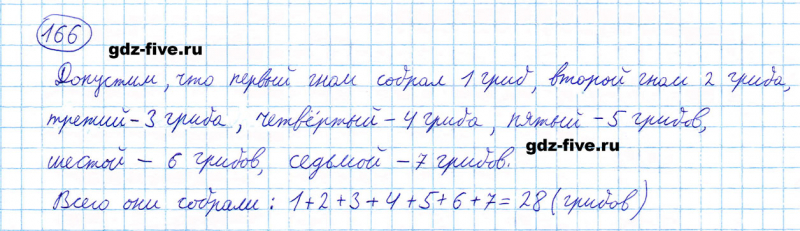 166
gdz-five.ru
Допустим, что первый гном собрал 1 гриб, второй гном 2 гриба,
третий - 3 гриба, четвёртый - 4 гриба, пятый - 5 грибов,
gdz-five.ru
шестой - 6 грибов, седьмой - 7 грибов.
Всего они собрали: 1+2+3+4+5+6+7=28 (грибов)